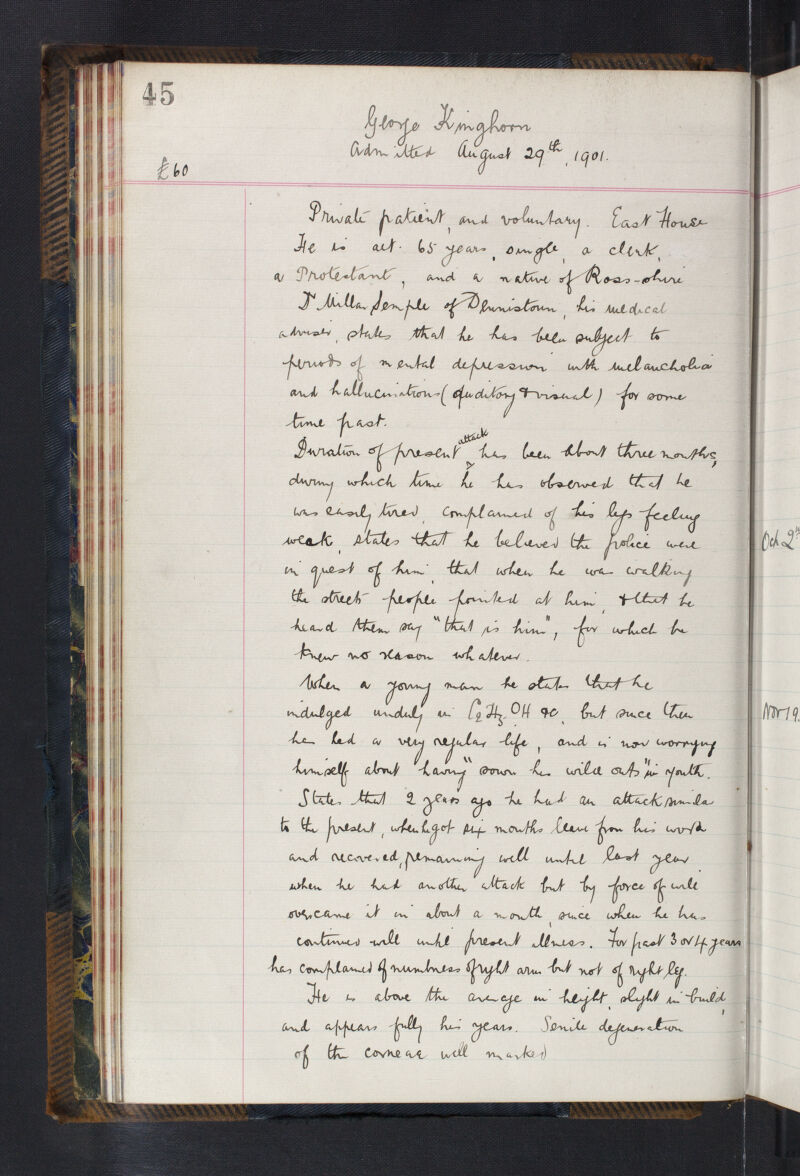 45
George Kinghorn
Admitted August 29th, 1901.
£60
Private patient, and voluntary. East House
He is aet. 65 years, single, a clerk,
a Protestant, and a native of Ross-shire
Dr Millar Semple of Dennistoun, his medical
adviser, states that he has been subject to
periods of mental depression with melancholia
and hallucinations (auditory & visual) for some
time past.
Duration of present attack has been about three months,
during which time he has observed that he
was easily tired, complained of his legs feeling
weak, states that he believed the police were
in quest of him, that when he was walking
the streets people pointed at him, & that he
heard them say "that is him", for which he
knew no reason whatever.
When a young man he states that he
indulged unduly in C2H5OH &c, but since then
has led a very regular life, and is now worrying
himself about having "sown his wild oats" in youth.
States that 2 years ago he had an attack similar
to the present, when he got six months leave from his work
and recovered, remaining well until last year
when he had another attack but by force of will
overcame it in about a month, since when he has
continued well until present illness. For past 3 or 4 years
has complained of numbness of right arm but not of right leg.
He is above the average in height, slight in build,
and appears fully his years. Senile degeneration
of the corneae well marked
Oct 2nd
Nov 19.